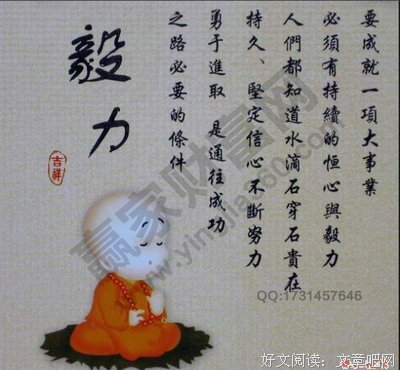 要成就一項大事業
必須有持續的恒心與毅力
人們都知道水滴石穿石貴在
持久、堅定信心不斷努力
勇于進取 是通往成功
之路必要的條件
毅力
吉祥
赢家财富网
www.yingjia360.com
QQ:1731457646
好文阅读：文章吧网